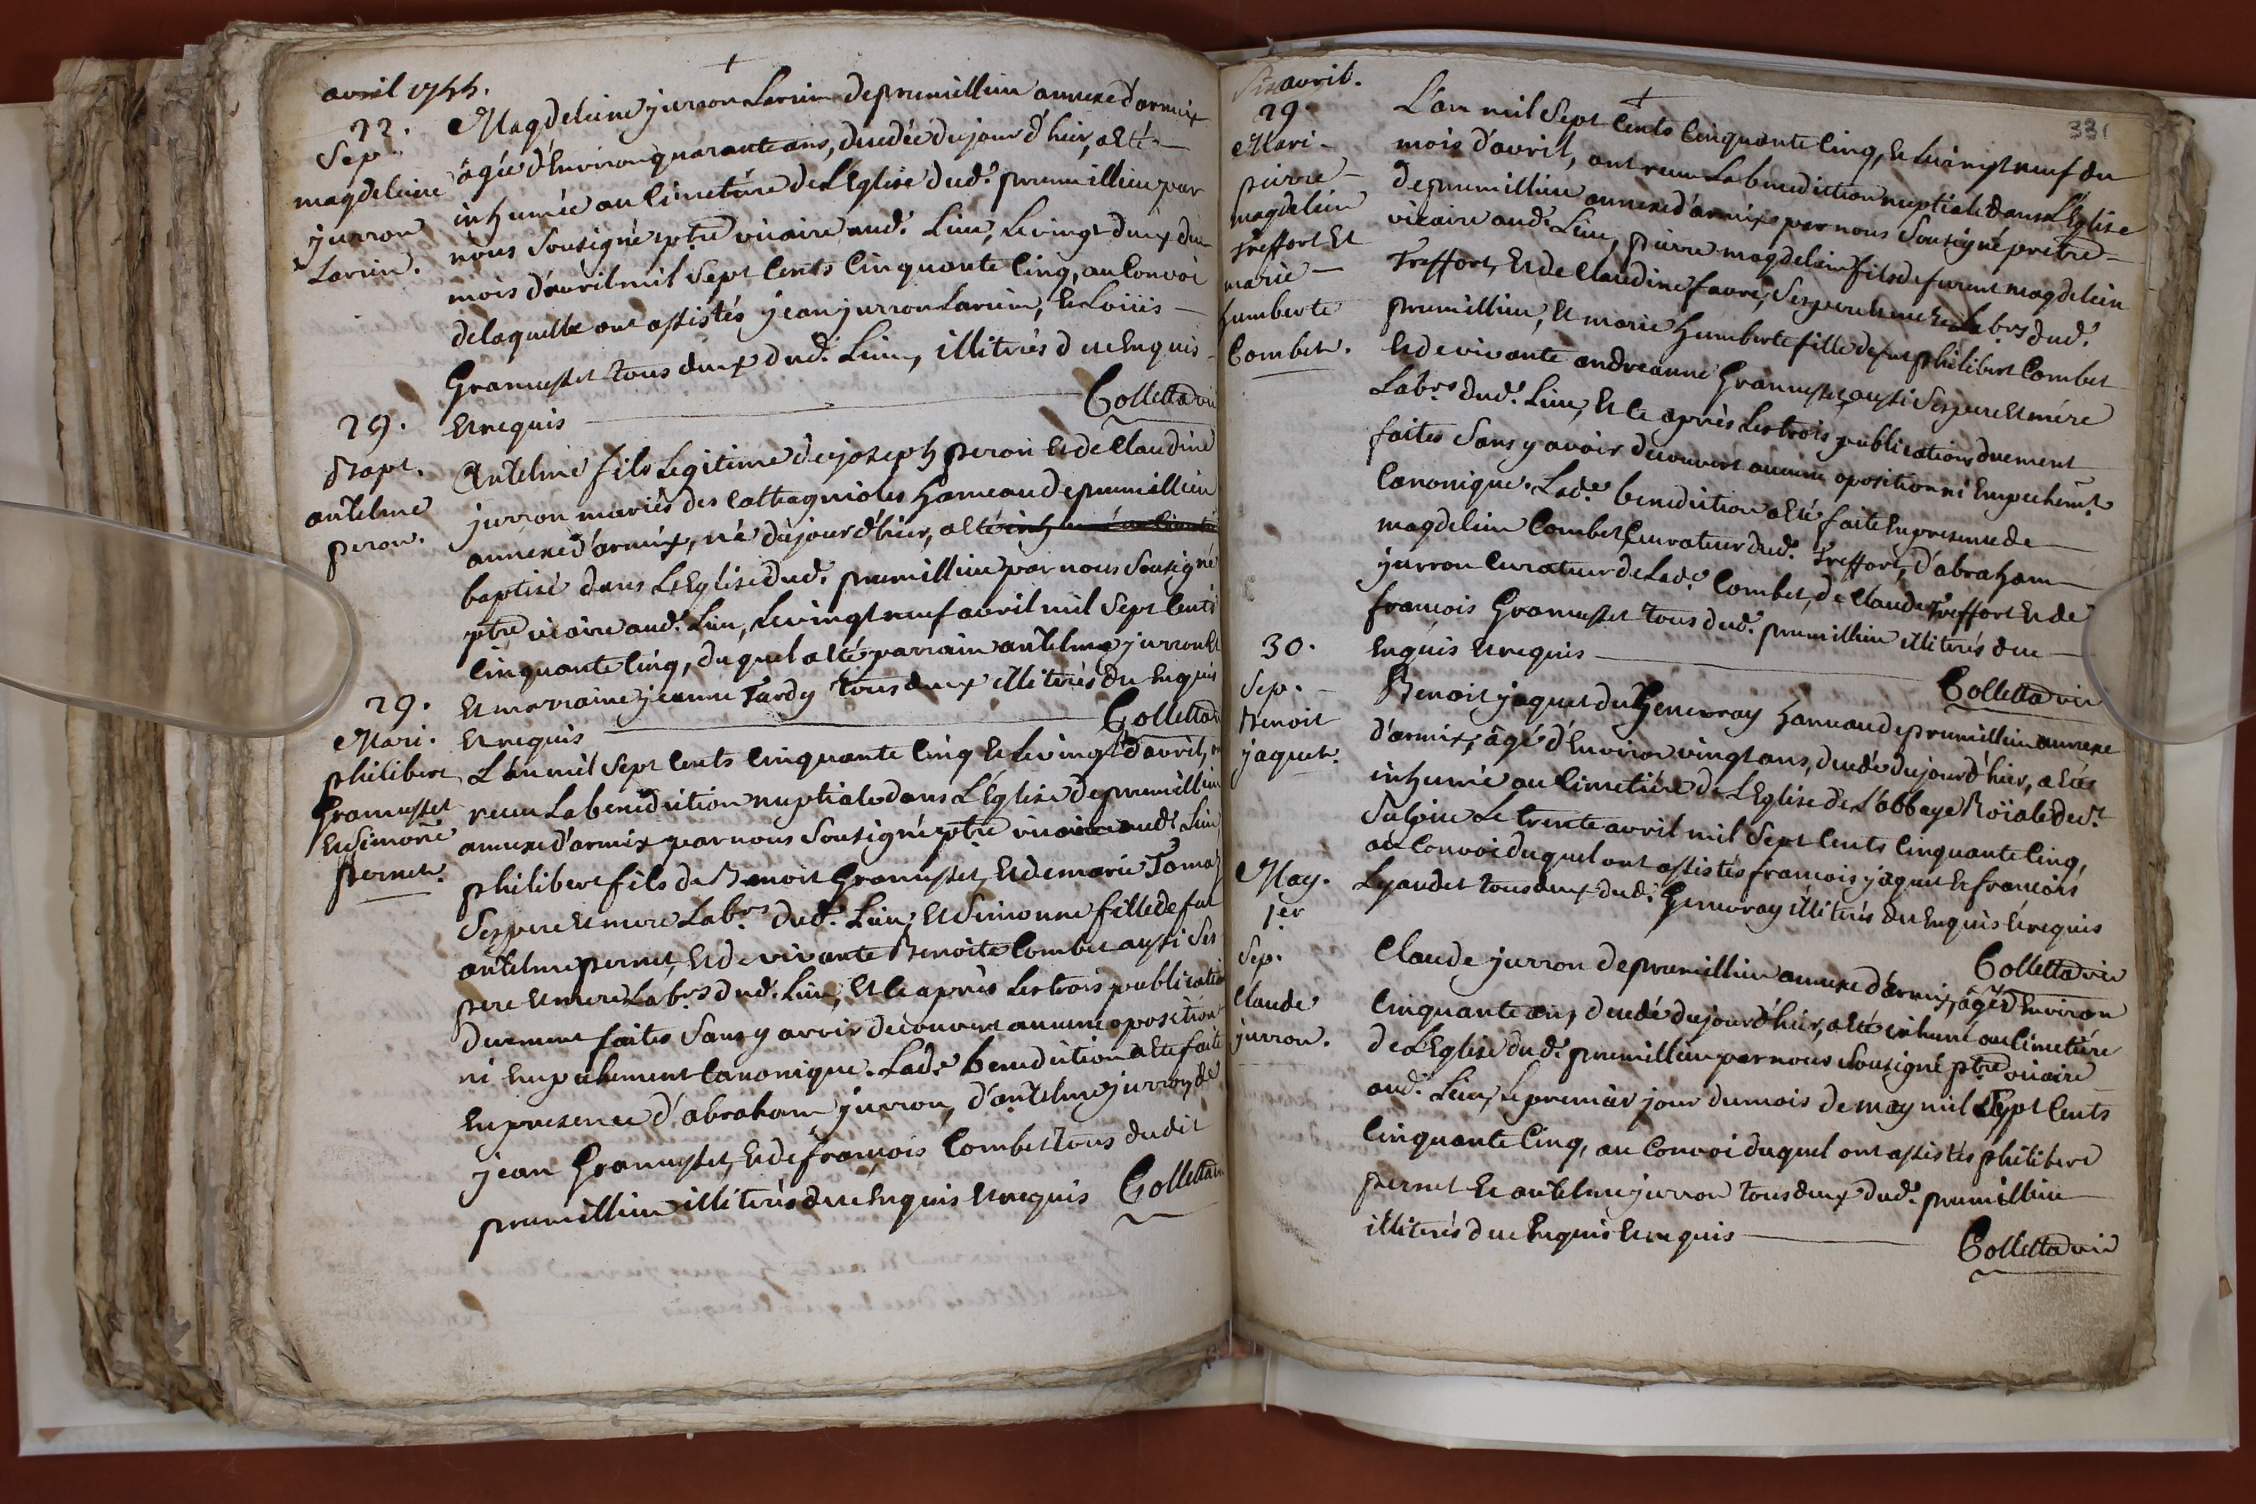 avril 1755.
22.
Sep.
magdeleine
jurron
Larin.
Magdeleine jurron Larin de premillieu annexe d'armix
âgée d'Environ quarante ans, decedée du jour d'hier, a Eté
inhumée au Cimetière de L'Eglise dud.t premillieu par
nous Sousigné ptre vicaire aud.t Lieu, Le vingt deux du
mois d'avril mil Sept Cents Cinquante Cinq, au Convoi
de laquelle ont assistés jean jurron Larin, Et Loüis
Gramusset tous deux dud.t Lieu, illiterés due Enquis
Et requis
Colletta vic
29.
Bapt.
antelme
peron.
Antelme fils Legitime de joseph peron Et de Claudine
jurron mariés des Cattagnioles hameau de premillieu
annexe d'armix, né du jour d'hier, a Eté inhumé au Cimetie
baptisé dans L'Eglise dud.t premillieu par nous Sousigné
ptre vicaire aud.t Lieu, Le vingt neuf avril mil Sept Cents
Cinquante Cinq, duquel a Eté parrain antelme jurron Et
Et marraine jeanne Tardy tous deux illiterés du Enquis
Et requis
Colletta v
29.
Mari.
philibert
Gramusset
Et Simone
pernet.
L'an mil Sept Cents Cinquante Cinq Et Le vingt d'avril,
receu La benediction nuptiale dans L'Eglise de premillieu
annexe d'armix par nous Sousigné ptre vicaire aud.t Lieu
philibert fils de Benoit Gramusset, Et de marie Tomaz
Ses pere Et mere Lab.rs dud.t Lieu, Et Simonne fille de fut
antelme pernet, Et de vivante Benoite Combet aussi Ses
pere Et mere Lab.rs dud.t Lieu, Et Ce après Les trois publicatio
Duement faites Sans y avoir decouvert aucune oposition
ni Empechement Canonique. Lad.e benediction a Eté faite
En presence d'abraham jurron, d'antelme jurron, de
jean Gramusset, Et de françois Combet tous dudit
premillieu illiterés due Enquis Et requis Colletta vi
avril.
29.
Mari-
pierre
magdelein
Treffort Et
marie
humberte
Combet.
331
L'an mil Sept Cents Cinquante Cinq, Et Le vingt neuf du
mois d'avril, ont receu La benediction nuptiale dans L'Eglise
de premillieu annexe d'armix par nous Sousigné pretre
vicaire aud.t Lieu, pierre magdelein fils de furent magdelein
Treffort, Et de Claudine favre, Ses pere Et mere Lab.rs dud.t
premillieu, Et marie humberte fille de fut philibert Combet
Et de vivante andreanne Gramusset aussi Ses pere Et mére
Lab.rs dud.t Lieu, Et Ce après Les trois publications duement
faites Sans y avoir decouvert aucune oposition ni Empechemt
Canonique. Lad.e benediction a Eté faite En presence de
magdelein Combet, Curateur dud.t Treffort, d'abraham
jurron Curateur de Lad.e Combet, de Claude Treffort Et de
francois Gramusset tous dud.t premillieu illiterés due
Enquis Et requis
Colletta vic
30.
Sep.
Benoit
jaquet.
Benoit jaquet du Genevray hameau de premillieu annexe
d'armix, âgé d'Environ vingt ans, decedé du jour d'hier, a Eté
inhumé au Cimetière de L'Eglise de L'abbaye Roïale de S.t
Sulpice Le trente avril mil Sept Cents Cinquante Cinq,
au Convoi duquel ont assistés francois jaquet Et francois
Lyaudet tous deux dud.t Genevray illiterés du Enquis Et requis
Colletta vic
May.
1.er
Sep.
Claude
jurron.
Claude jurron de premillieu annexe d'armix, âgé d'Environ
Cinquante ans, decedé du jour d'hier, a Eté inhumé au Cimetière
de L'Eglise dud.t premillieu par nous Sousigné ptre vicaire
aud.t Lieu, Le premier jour du mois de may mil Sept Cents
Cinquante Cinq, au Convoi duquel ont assistés philibert
pernet Et antelme jurron tous deux dud.t premillieu
illiterés due Enquis Et requis
Colletta vic